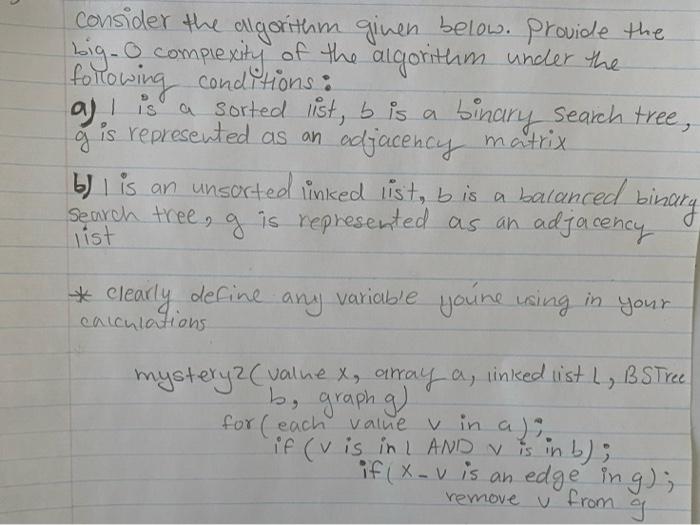 consider the algorithm given below. Provide the
big-O complexity of the algorithm under the
following conditions:
a) l is a sorted list, b is a binary search tree,
g is represented as an adjacency matrix
b) l is an unsorted linked list, b is a balanced binary
search tree, g is represented as an adjacency
list
* clearly define any variable you're using in your
calculations
mystery2(value x, array a, linked list l, BSTree
b, graph g)
for(each value v in a);
if (v is in l AND v is in b);
if(x-v is an edge in g);
remove v from g